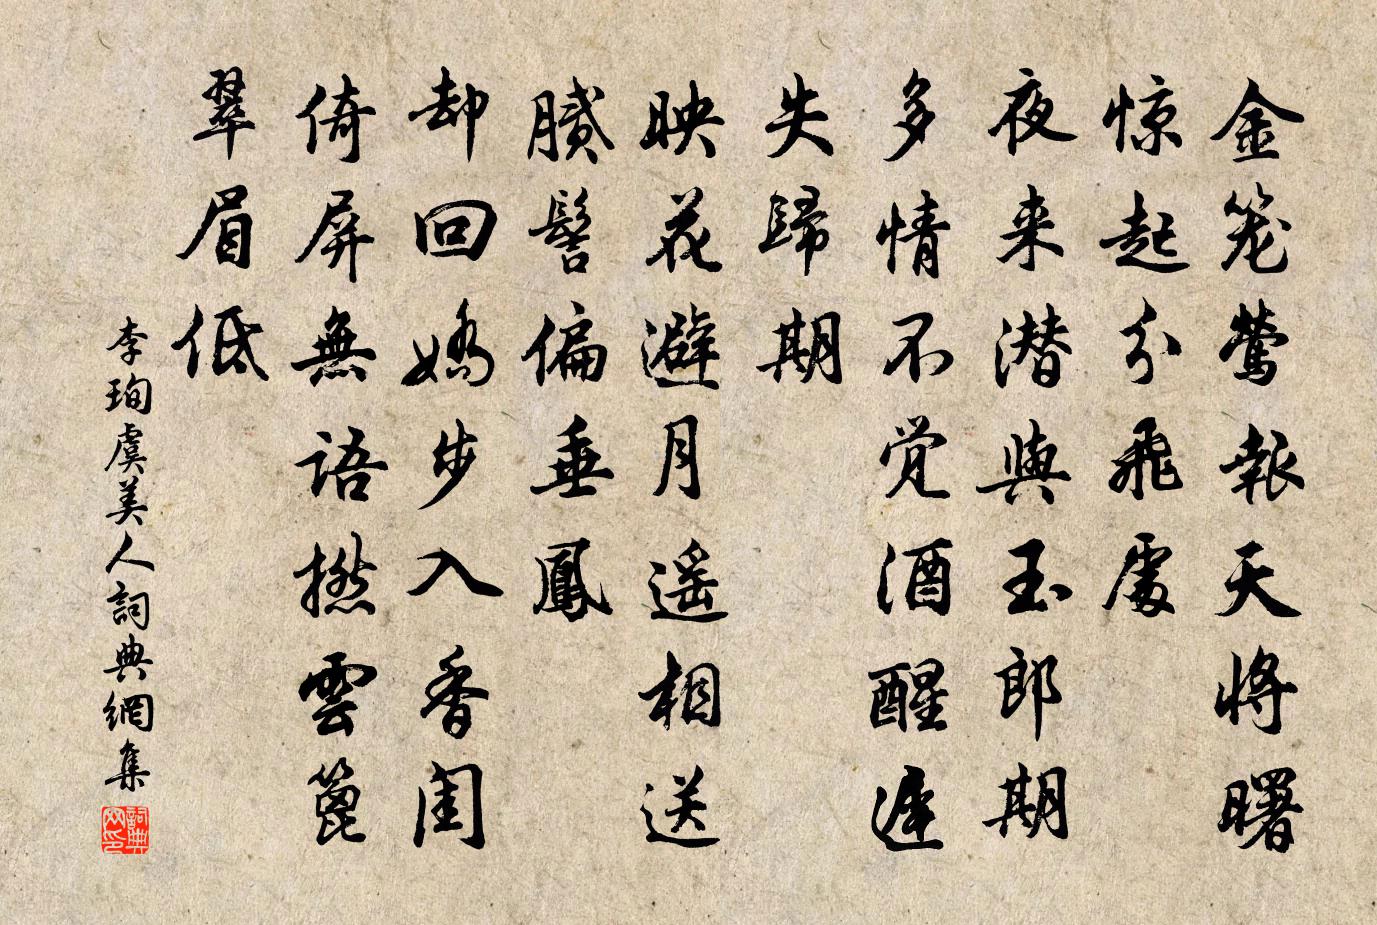 金笼莺報天将曙
惊起分飛處
夜来潜與玉郎期
多情不觉酒醒遲
失歸期
映花避月遥相送
膩髻偏垂鳳
却回嬌步入香闺
倚屏無語撚雲篦
翠眉低
李珣虞美人詞典網集
詞典
网印